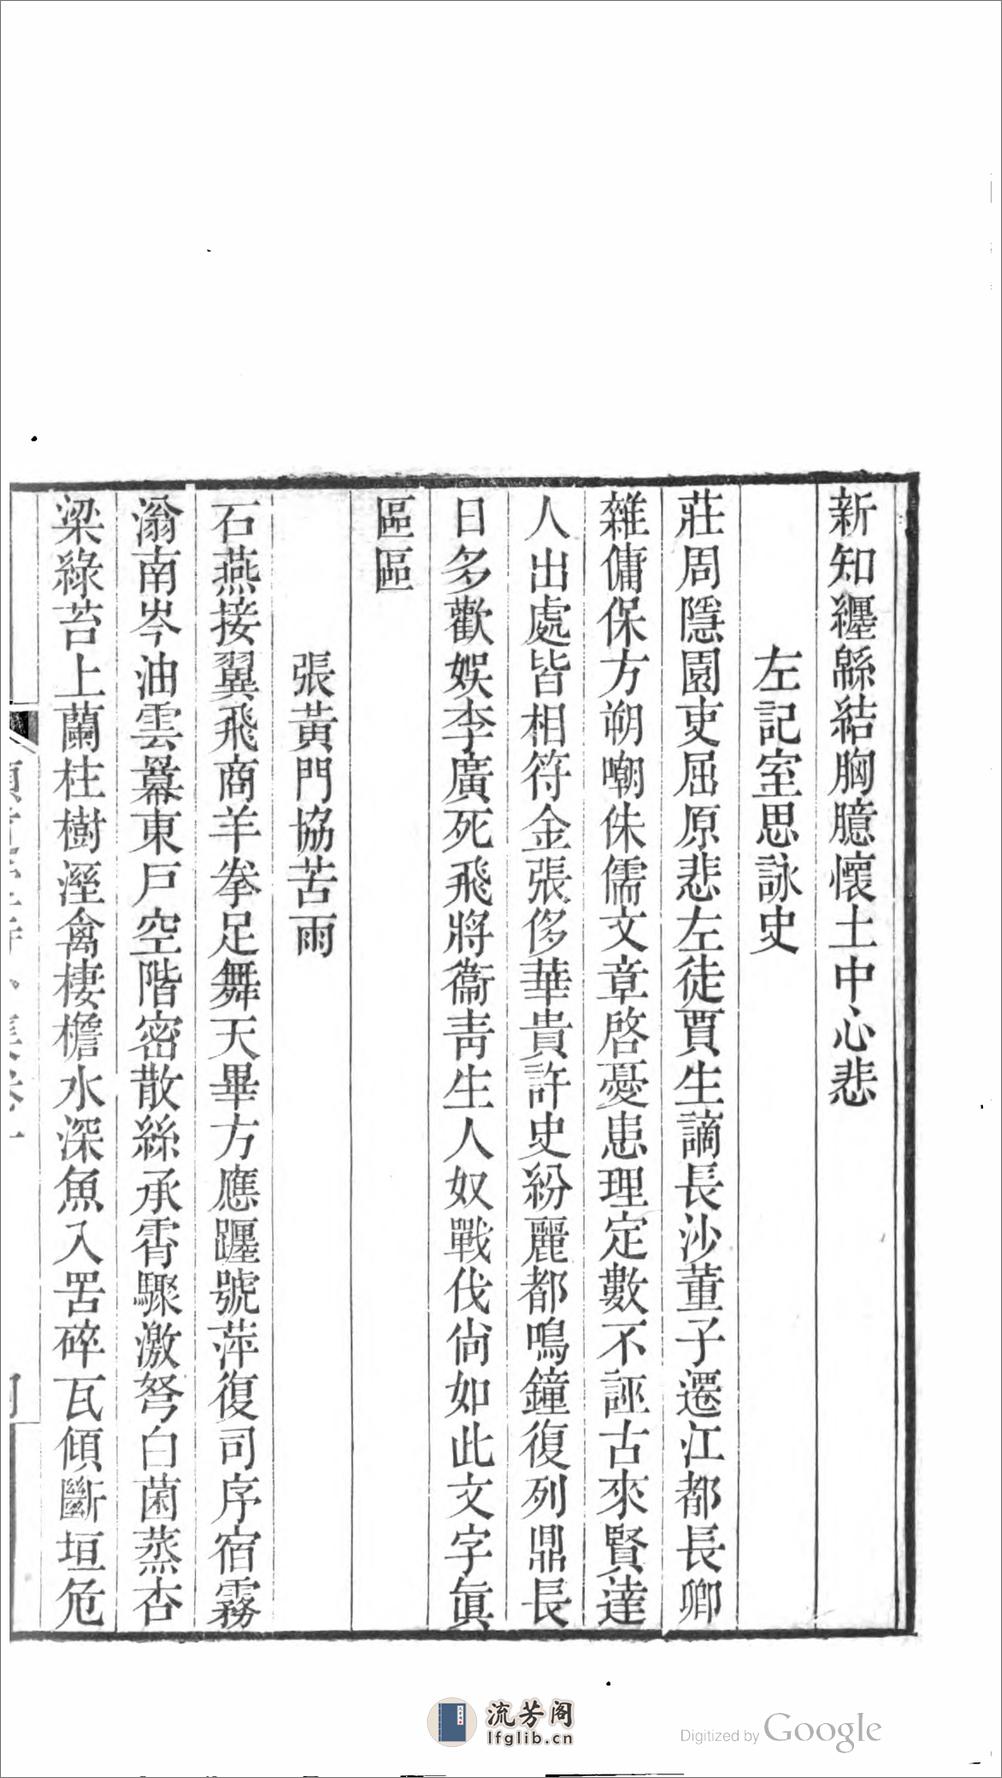 新知纏緜結胸臆懷土中心悲
左記室思詠史
莊周隱園吏屈原悲左徒賈生謫長沙董子遷江都長卿
雜傭保方朔嘲侏儒文章啓憂患理定數不誣古來賢達
人出處皆相符金張侈華貴許史紛麗都鳴鐘復列鼎長
日多歡娛李廣死飛將衞青生人奴戰伐尙如此文字眞
區區
張黃門協苦雨
石燕接翼飛商羊拳足舞天畢方應躔號萍復司序宿霧
滃南岑油雲羃東戸空階密散絲承霤驟激弩白菌蒸杏
梁綠苔上蘭柱樹溼禽棲檐水深魚入罟碎瓦傾斷垣危
流芳阁
lfglib.cn
Digitized by Google